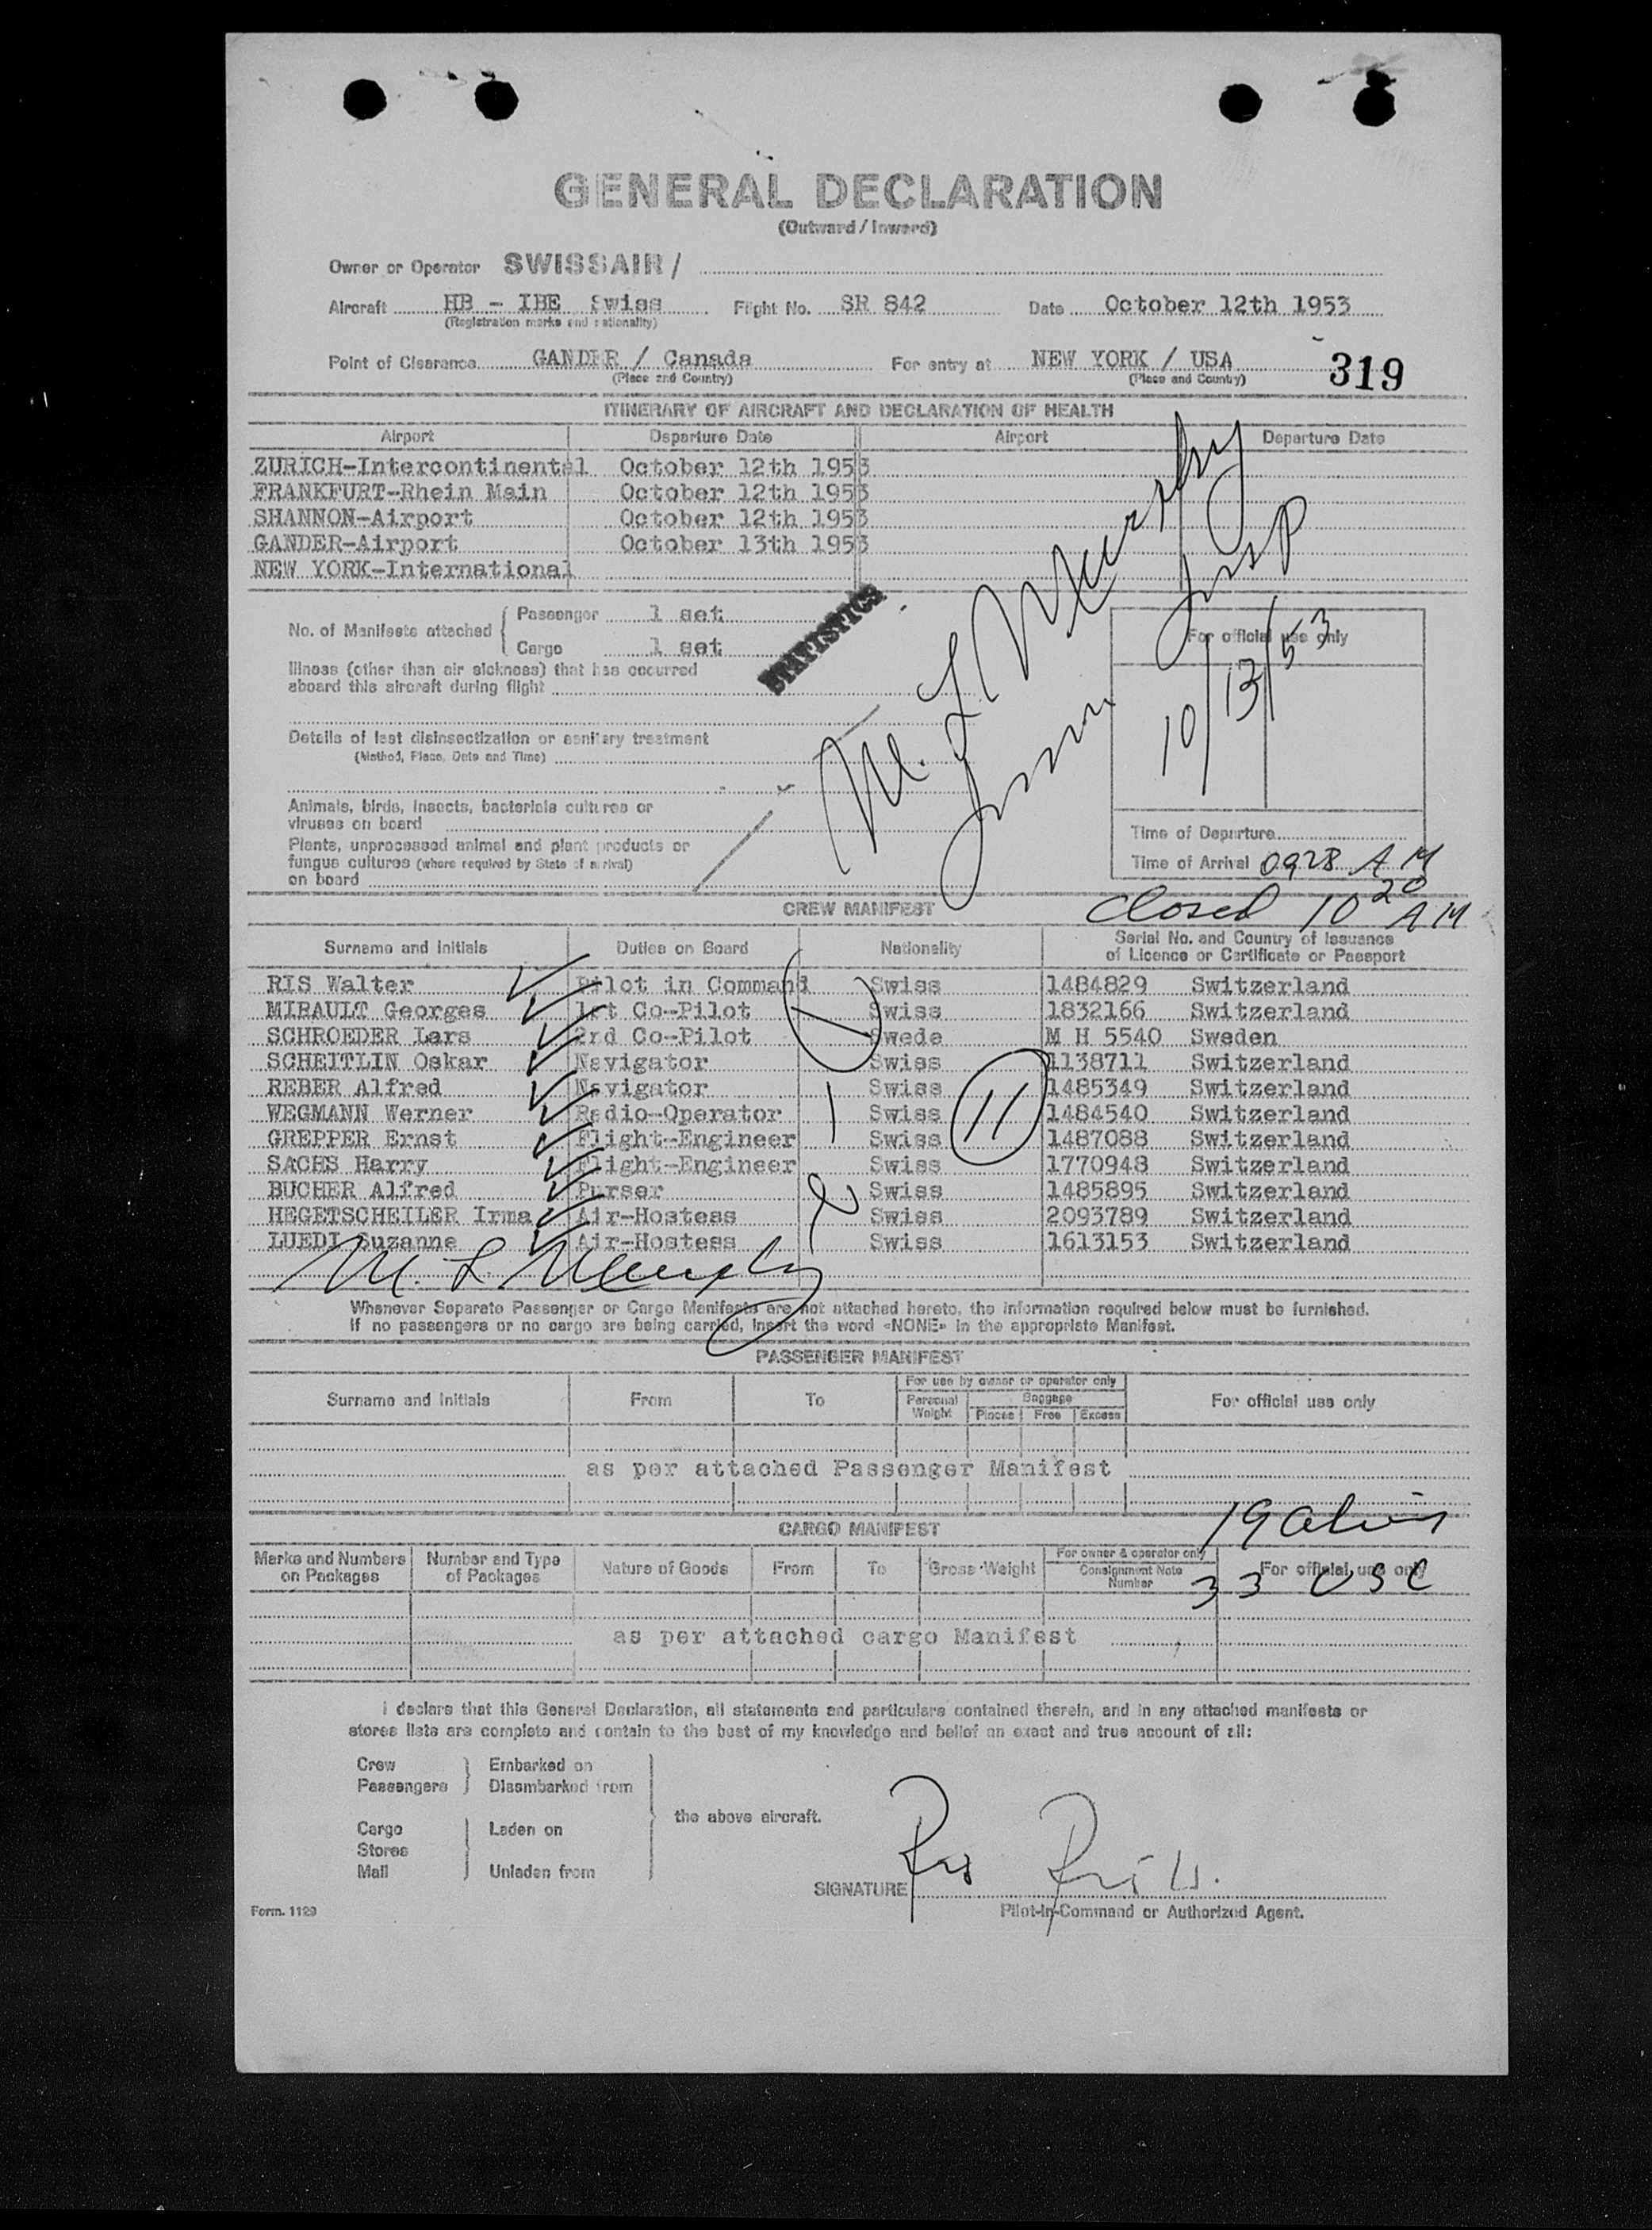 GENERAL DECLARATION
(Outward / Inward)
Owner or Operator SWISSAIR /
Aircraft HB - IBE Swiss Flight No. SR 842 Date October 12th 1953
(Registration marks and nationality)
Point of Clearance GANDER / Canada For entry at NEW YORK / USA 319
(Place and Country) (Place and Country)
ITINERARY OF AIRCRAFT AND DECLARATION OF HEALTH
Airport Departure Date Airport Departure Date
ZURICH-Intercontinental October 12th 1953
FRANKFURT-Rhein Main October 12th 1953
SHANNON-Airport October 12th 1953
GANDER-Airport October 13th 1953
NEW YORK-International
M. L. Murphy
Imm Insp
STATISTICS
No. of Manifests attached Passenger 1 set
Cargo 1 set
For official use only
10/13/53
Illness (other than air sickness) that has occurred
aboard this aircraft during flight
Details of last disinsectization or sanitary treatment
(Method, Place, Date and Time)
Animals, birds, insects, bacterials cultures or
viruses on board
Plants, unprocessed animal and plant products or
fungus cultures (where required by State of arrival)
on board
Time of Departure
Time of Arrival 0928 AM
Closed 10 20 AM
CREW MANIFEST
Surname and Initials Duties on Board Nationality Serial No. and Country of Issuance
of Licence or Certificate or Passport
RIS Walter Pilot in Command Swiss 1484829 Switzerland
MIRAULT Georges 1st Co-Pilot Swiss 1832166 Switzerland
SCHROEDER Lars 2nd Co-Pilot Swede M H 5540 Sweden
SCHEITLIN Oskar Navigator Swiss 1138711 Switzerland
REBER Alfred Navigator Swiss 1485349 Switzerland
WEGMANN Werner Radio-Operator Swiss 1484540 Switzerland
GREPPER Ernst Flight-Engineer Swiss 1487088 Switzerland
SACHS Harry Flight-Engineer Swiss 1770948 Switzerland
BUCHER Alfred Purser Swiss 1485895 Switzerland
HEGETSCHEILER Irma Air-Hostess Swiss 2093789 Switzerland
LUEDI Suzanne Air-Hostess Swiss 1613153 Switzerland
11
M. L. Murphy
Whenever Separate Passenger or Cargo Manifests are not attached hereto, the information required below must be furnished.
If no passengers or no cargo are being carried, insert the word «NONE» in the appropriate Manifest.
PASSENGER MANIFEST
Surname and Initials From To For use by owner or operator only For official use only
Personal Weight Baggage
Pieces Free Excess
as per attached Passenger Manifest
19 aliens
CARGO MANIFEST
Marks and Numbers on Packages Number and Type of Packages Nature of Goods From To Gross Weight For owner & operator only Consignment Note Number For official use only
33 USC
as per attached cargo Manifest
I declare that this General Declaration, all statements and particulars contained therein, and in any attached manifests or
stores lists are complete and contain to the best of my knowledge and belief an exact and true account of all:
Crew Embarked on
Passengers Disembarked from
the above aircraft.
Cargo Laden on
Stores
Mail Unladen from
SIGNATURE Ris
Pilot-in-Command or Authorized Agent.
Form. 1129